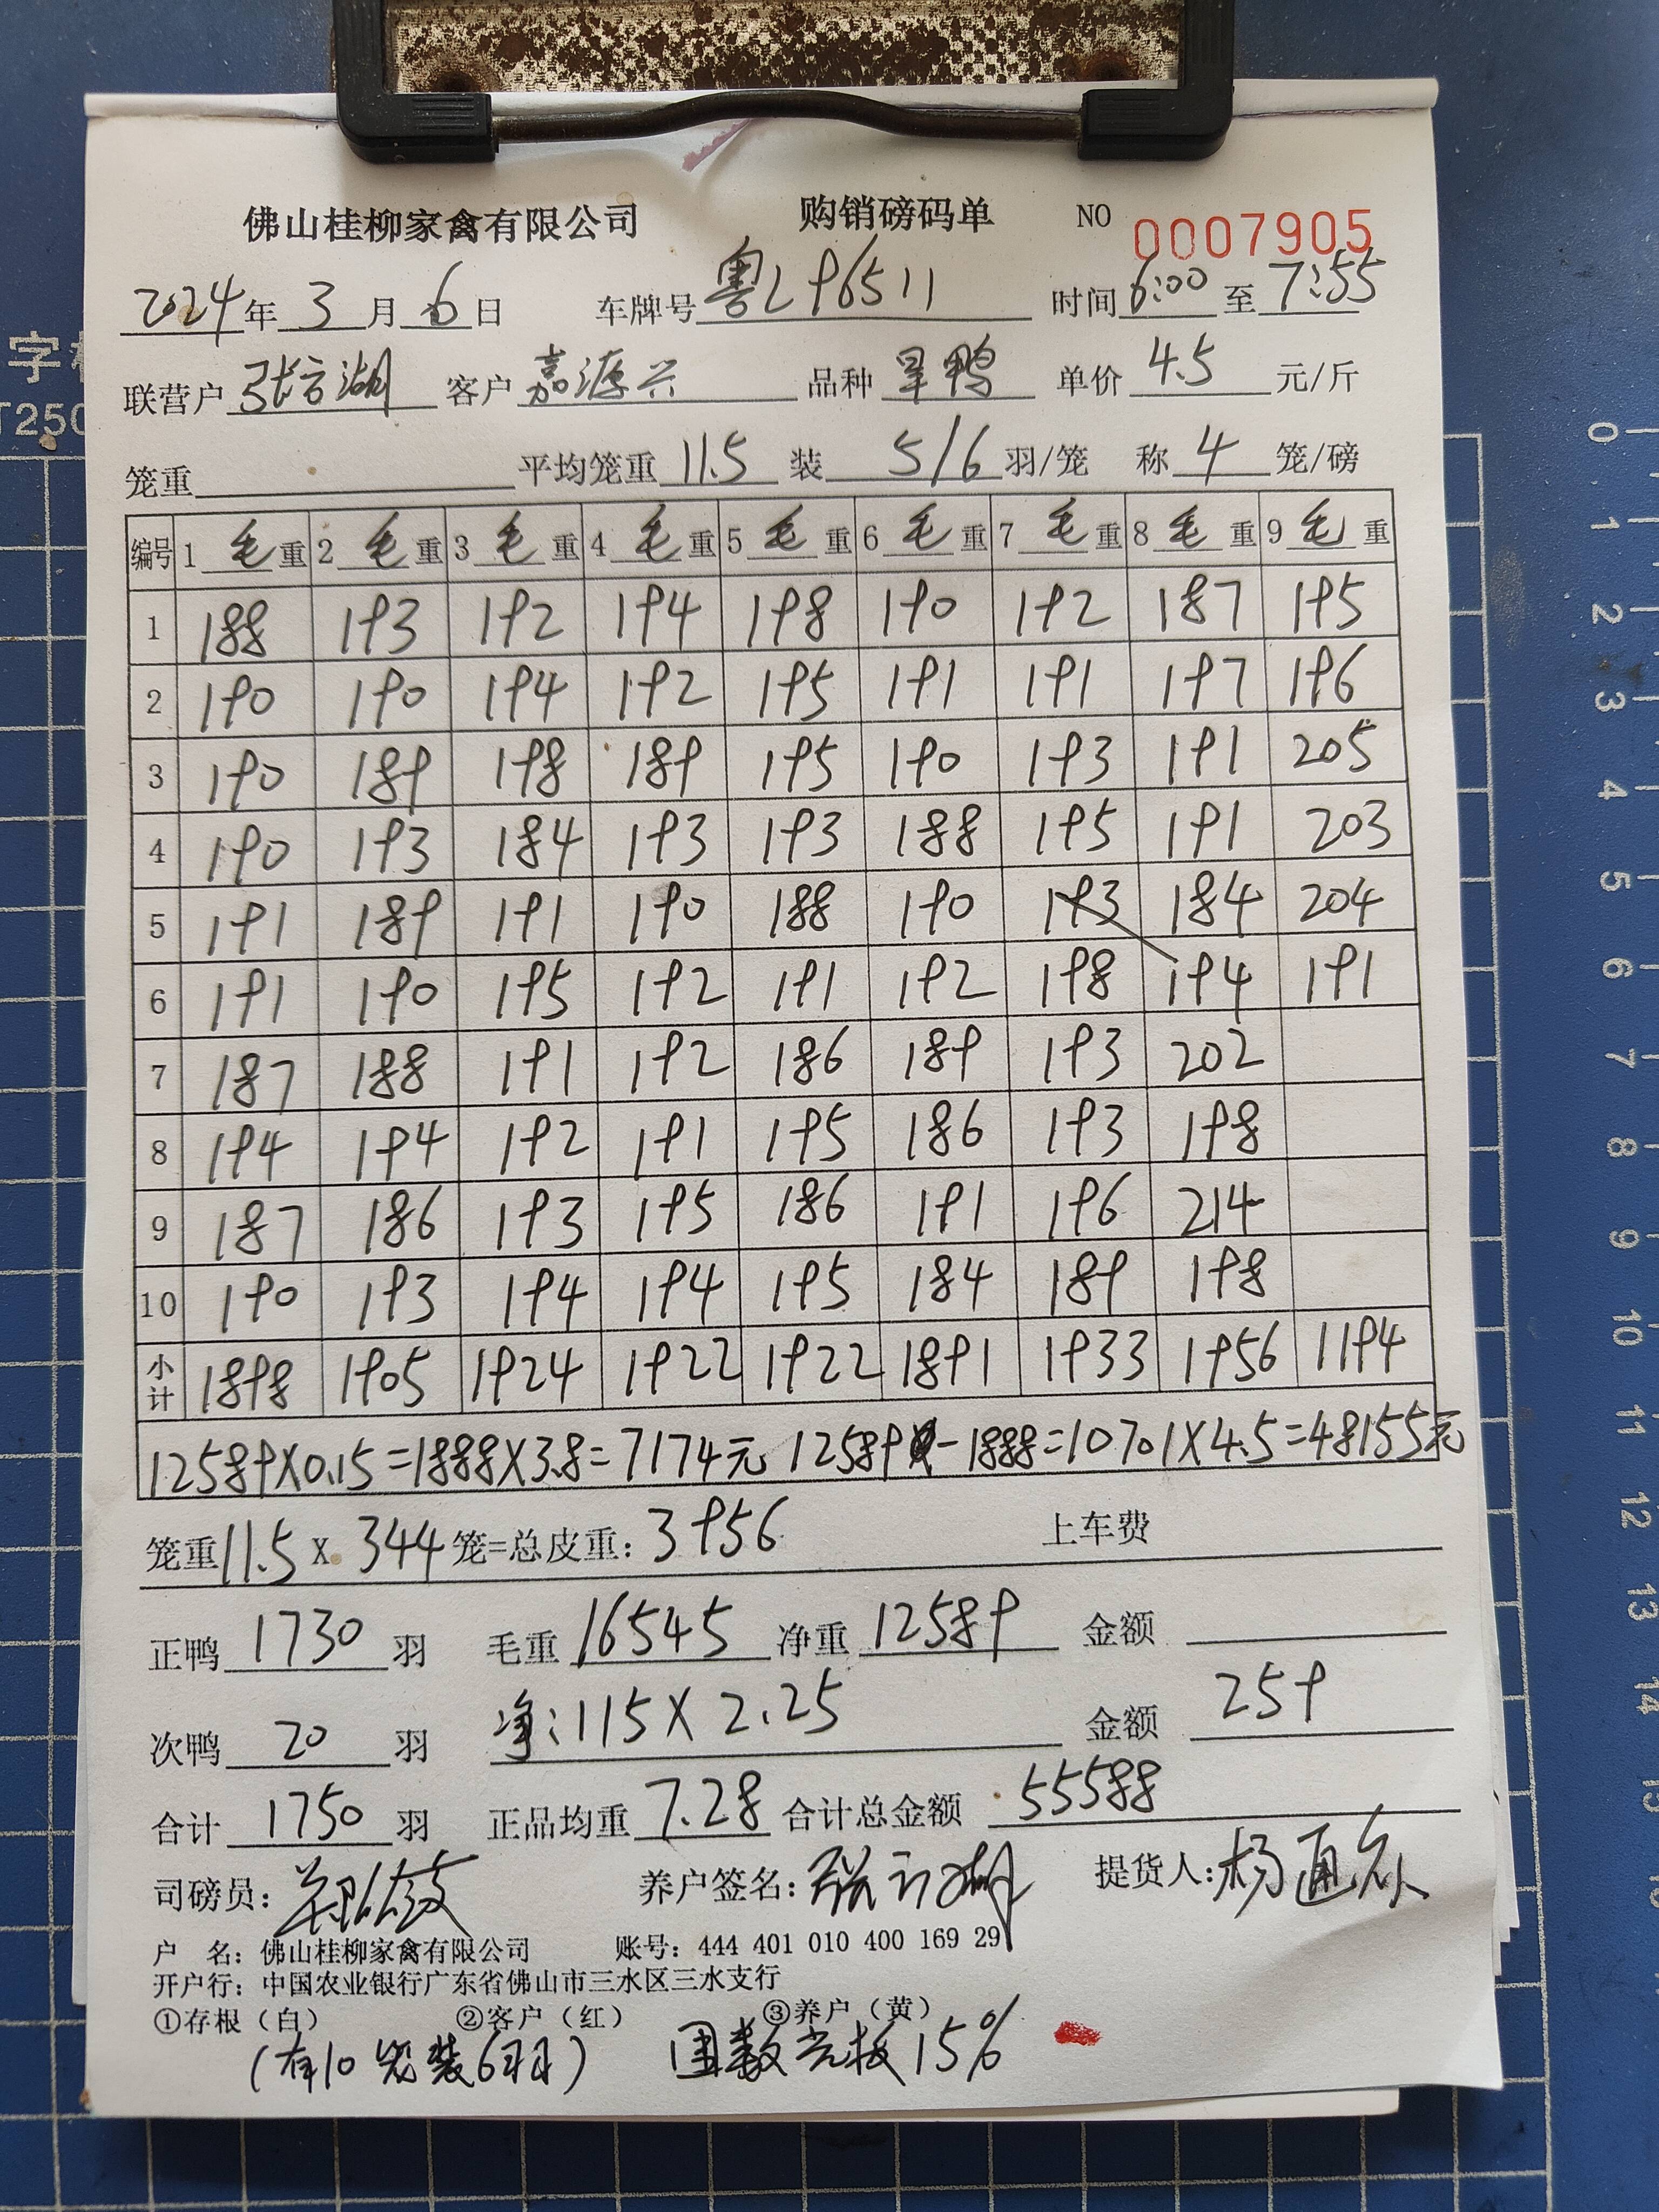 佛山桂柳家禽有限公司 购销磅码单 NO 0007905
2024年 3 月 6 日 车牌号 粤L96511 时间 6:00 至 7:55
联营户 张言湖 客户 嘉源兴 品种 旱鸭 单价 4.5 元/斤
笼重 平均笼重 11.5 装 5/6 羽/笼 称 4 笼/磅
编号 1 毛 重 2 毛 重 3 毛 重 4 毛 重 5 毛 重 6 毛 重 7 毛 重 8 毛 重 9 毛 重
1 188 193 192 194 198 190 192 187 195
2 190 190 194 192 195 191 191 197 196
3 190 189 198 189 195 190 193 191 205
4 190 193 184 193 193 188 195 191 203
5 191 189 191 190 188 190 193 184 204
6 191 190 195 192 191 192 198 194 191
7 187 188 191 192 186 189 193 202
8 194 194 192 191 195 186 193 198
9 187 186 193 195 186 191 196 214
10 190 193 194 194 195 184 189 198
小计 1898 1905 1924 1922 1922 1891 1933 1956 1194
12589X0.15=1888X3.8=7174元 12589-1888=10701X4.5=48155元
笼重11.5 X 344 笼=总皮重: 3956 上车费
正鸭 1730 羽 毛重 16545 净重 12589 金额
次鸭 20 羽 净:115X2.25 金额 259
合计 1750 羽 正品均重 7.28 合计总金额 55588
司磅员: 养户签名: 提货人:杨通
户 名: 佛山桂柳家禽有限公司 账号: 444 401 010 400 169 29
开户行: 中国农业银行广东省佛山市三水区三水支行
①存根(白) ②客户(红) ③养户(黄)
(有10笼装6羽) 光板15%
字
T250
0
1
2
3
4
5
6
7
8
9
10
11
12
13
14
15